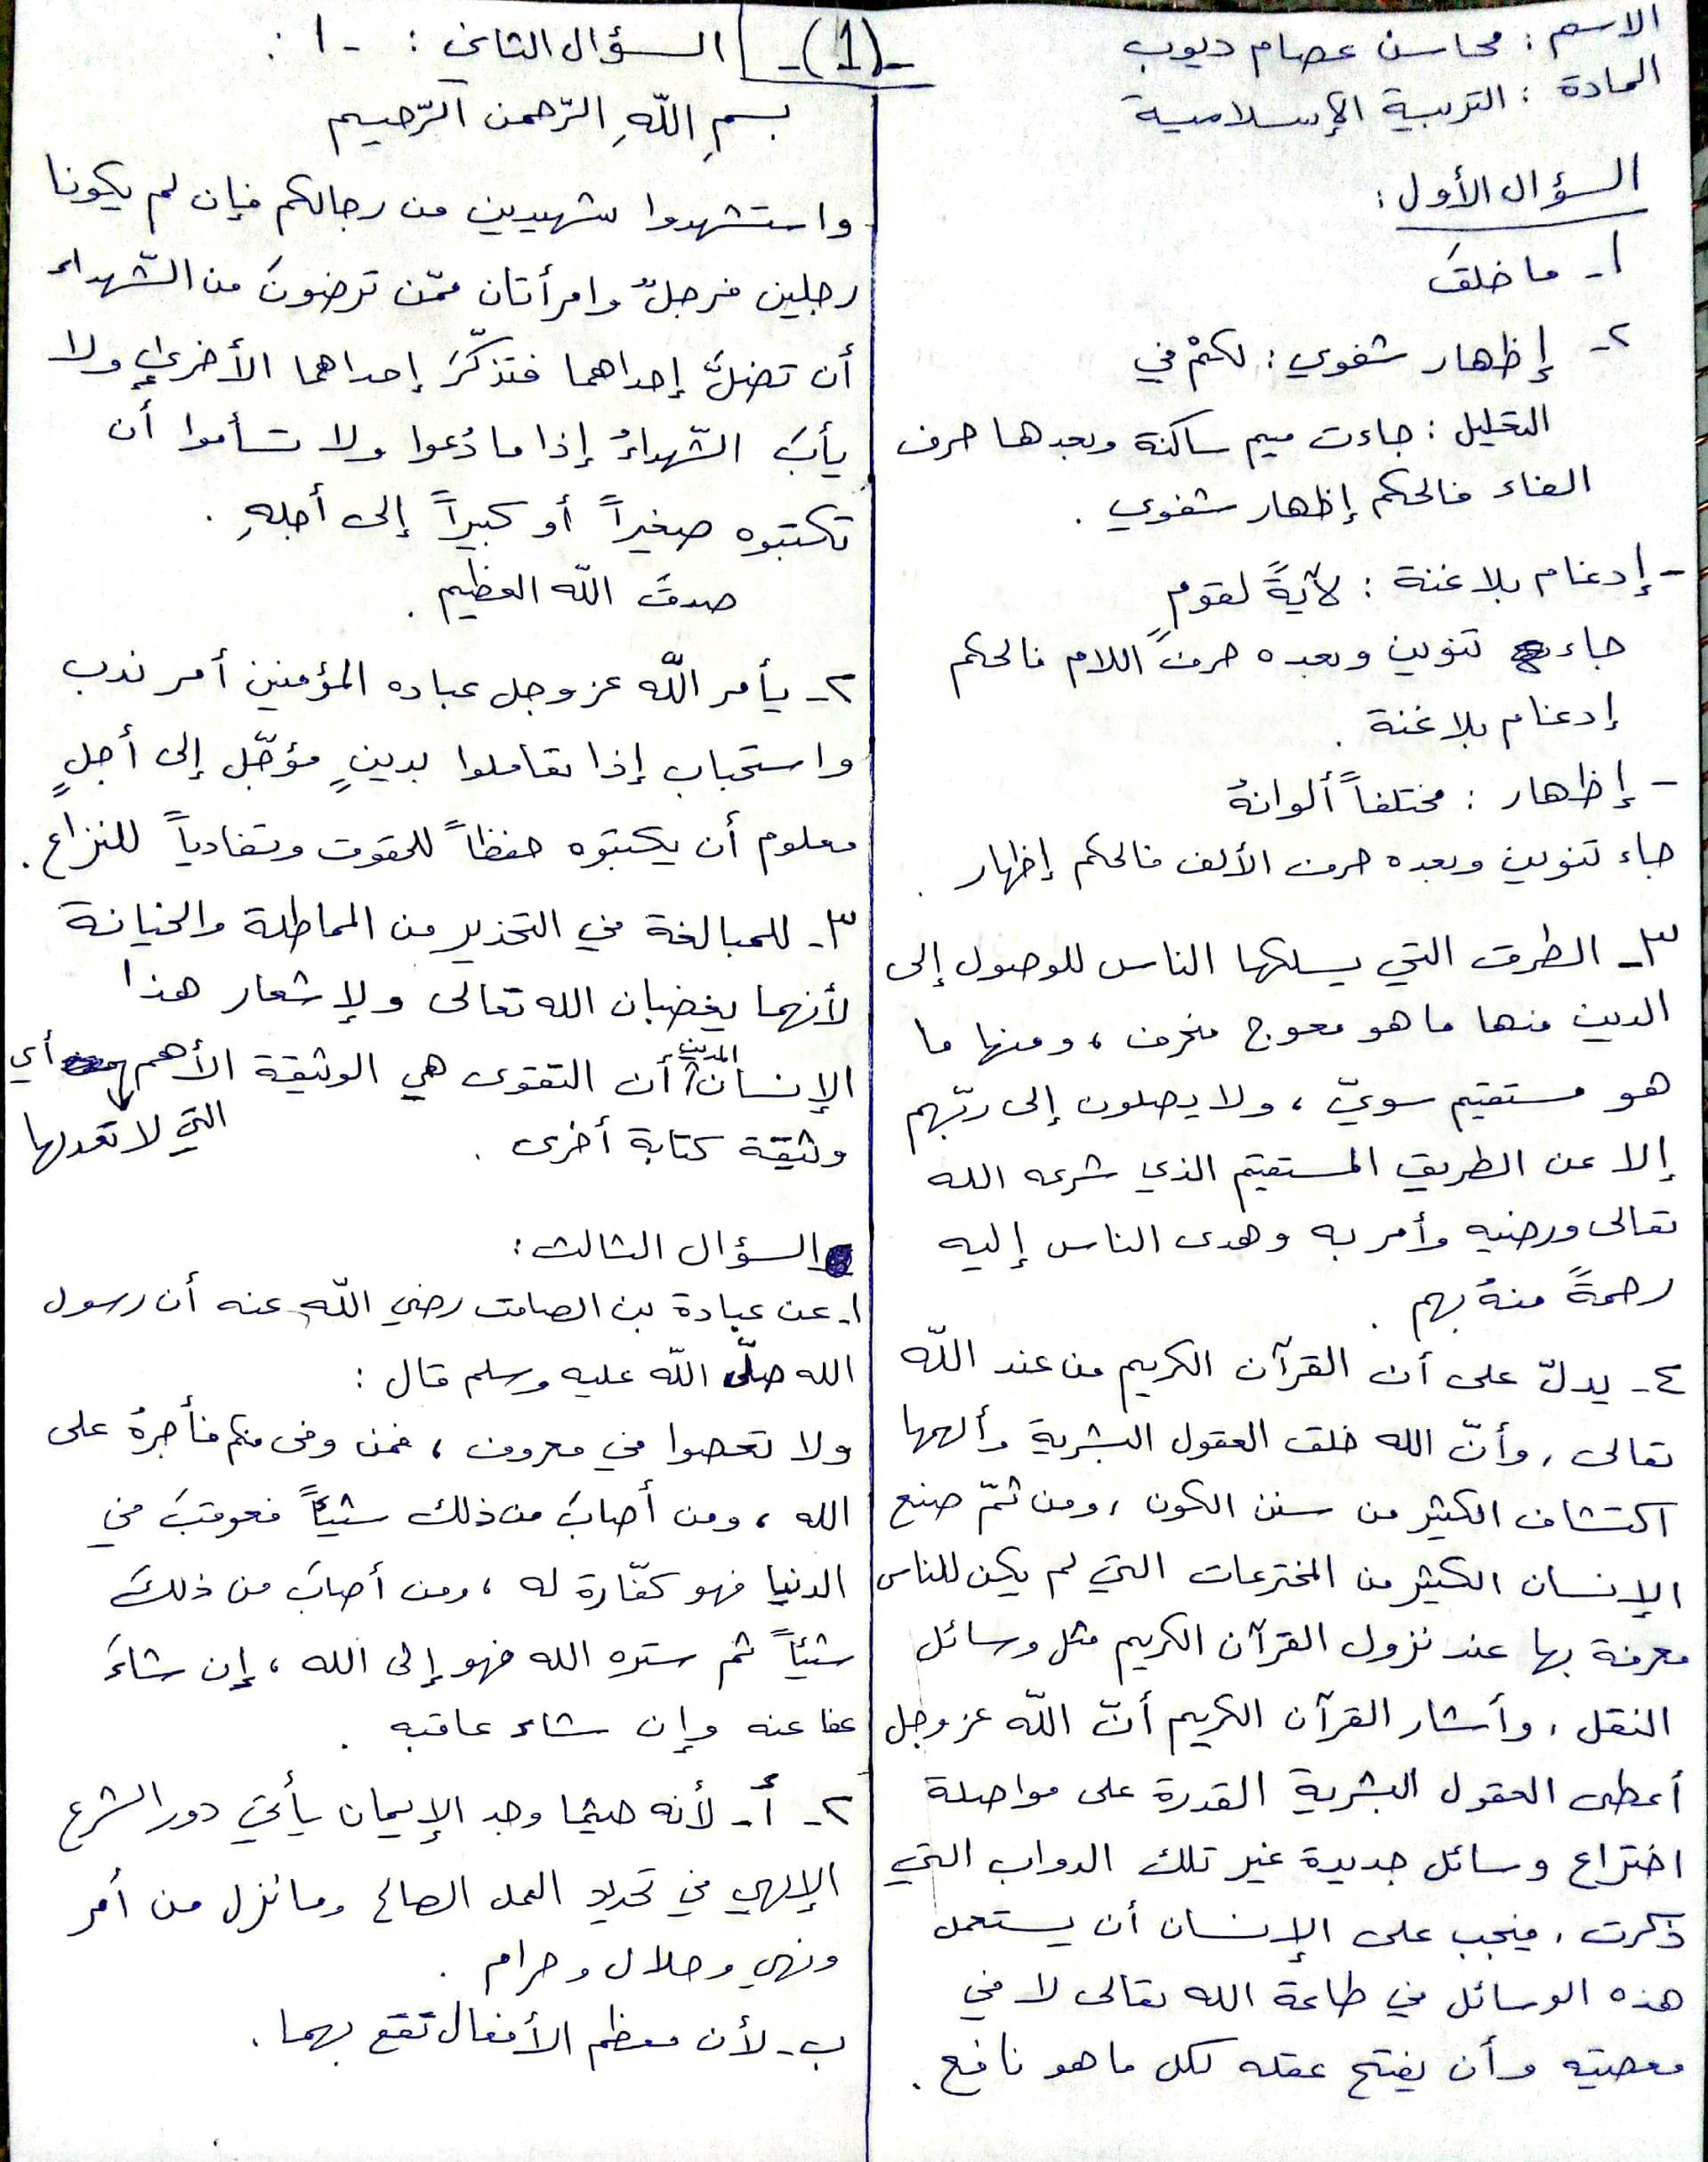 الاسم : محاسن عصام ديوب
المادة : التربية الإسلامية
-(1)-
السؤال الأول :
١- ما خلقَ
٢- إظهار شفوي : لكمْ في
التعليل : جاءت ميم ساكنة وبعدها حرف
الفاء فالحكم إظهار شفوي .
- إدغام بلا غنة : لآيةً لقومٍ
جاء تنوين وبعده حرف اللام فالحكم
إدغام بلا غنة .
- إظهار : مختلفاً ألوانهُ
جاء تنوين وبعده حرف الألف فالحكم إظهار .
٣- الطرق التي يسلكها الناس للوصول إلى
الدين منها ما هو معوج منحرف ، ومنها ما
هو مستقيم سويّ ، ولا يصلون إلى ربّهم
إلا عن الطريق المستقيم الذي شرعه الله
تعالى ورضيه وأمر به وهدى الناس إليه
رحمةً منهُ بهم .
٤- يدلّ على أن القرآن الكريم من عند اللّه
تعالى ، وأنّ الله خلق العقول البشرية وألهمها
اكتشاف الكثير من سنن الكون ، ومن ثمّ صنع
الإنسان الكثير من المخترعات التي لم يكن للناس
معرفة بها عند نزول القرآن الكريم مثل وسائل
النقل ، وأشار القرآن الكريم أنّ اللّه عز وجل
أعطى العقول البشرية القدرة على مواصلة
اختراع وسائل جديدة غير تلك الدواب التي
ذكرت ، فيجب على الإنسان أن يستعمل
هذه الوسائل في طاعة الله تعالى لا في
معصيته وأن يفتح عقله لكل ما هو نافع .
السؤال الثاني : ١- :
بسمِ اللّهِ الرّحمن الرّحيم
واستشهدوا شهيدين من رجالكم فإن لم يكونا
رجلين فرجلٌ وامرأتان ممّن ترضونَ من الشّهداء
أن تضلَّ إحداهما فتذكّرَ إحداهما الأخرى ولا
يأبَ الشّهداءُ إذا ما دُعوا ولا تسأموا أن
تكتبوه صغيراً أو كبيراً إلى أجلهِ .
صدقَ اللّه العظيم .
٢- يأمر اللّه عز وجل عباده المؤمنين أمر ندب
واستحباب إذا تعاملوا بدينٍ مؤجّل إلى أجلٍ
معلوم أن يكتبوه حفظاً للحقوق وتفادياً للنزاع .
٣- للمبالغة في التحذير من المماطلة والخيانة
لأنهما يغضبان الله تعالى ولإشعار هذا
الإنسان المدين أن التقوى هي الوثيقة الأهم التي لا تعدلها أي
وثيقة كتابة أخرى .
السؤال الثالث :
١- عن عبادة بن الصامت رضي اللّه عنه أن رسول
الله صلّى اللّه عليه وسلم قال :
ولا تعصوا في معروف ، فمن وفى منكم فأجرهُ على
الله ، ومن أصابَ من ذلك شيئاً فعوقبَ في
الدنيا فهو كفّارة له ، ومن أصابَ من ذلكَ
شيئاً ثم ستره الله فهو إلى الله ، إن شاءَ
عفا عنه وإن شاء عاقبه .
٢- أ- لأنه حيثما وجد الإيمان يأتي دور الشرع
الإلهي في تحديد العمل الصالح وما نزل من أمر
ونهي وحلال وحرام .
ب- لأن معظم الأفعال تقع بهما .